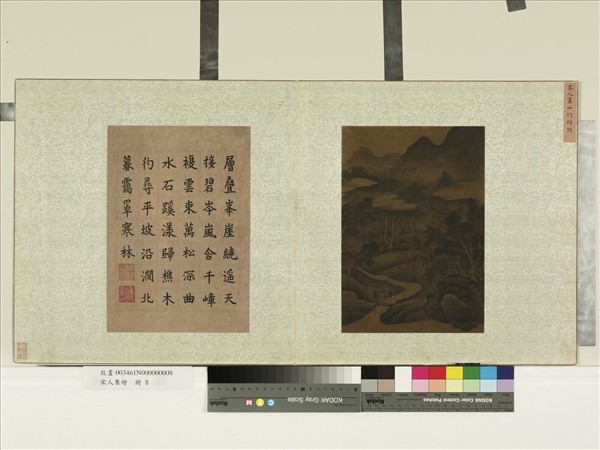 層疊峯崖繞遥天
接碧岑嵐合千嶂
複雲束萬松深曲
水石蹊漾歸樵木
彴尋平坡沿澗北
暮靄罩寒林
宋人畫山行
故畫 003461N000000008
宋人集繪 冊 8
KODAK Gray Scale
KODAK Color Control Patches